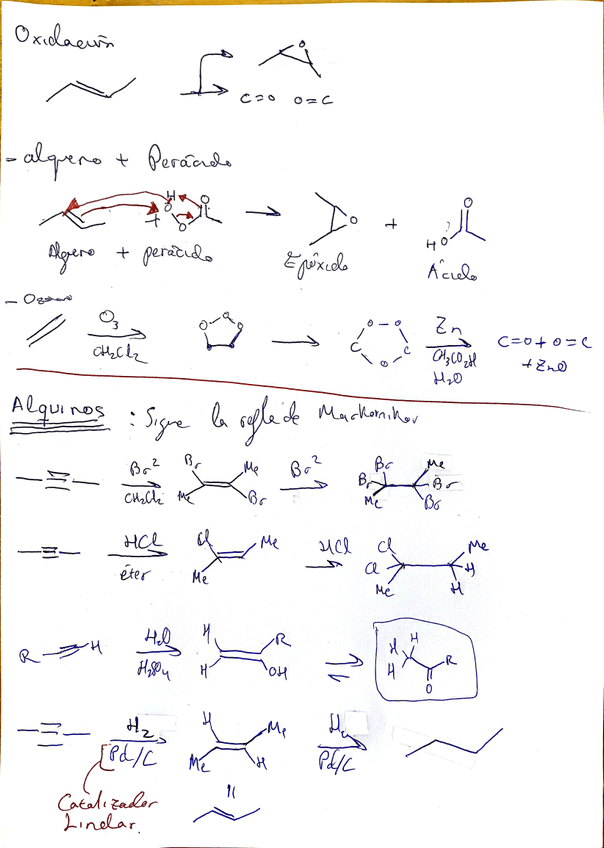 Oxidación
O
C=O O=C
- alqueno + Perácido
H
O O
O
+
O
+
O
H O
Alqueno + perácido Epóxido Ácido
- Ozono
O3
CH2Cl2
O O O
O - O
C C
O
Zn
CH3CO2H
H2O
C=O + O=C
+ ZnO
Alquinos : Sigue la regla de Markornikov
Br2
CH2Cl2
Br Me
Me Br
Br2
Br Me
Br Br
Me Br
HCl
éter
Cl Me
Me
HCl
Cl Me
Cl H
Me H
R H
H2O
H2SO4
H R
H OH
H H R
O
H2
Pd/C
H Me
Me H
H2
Pd/C
Catalizador
Lindlar.